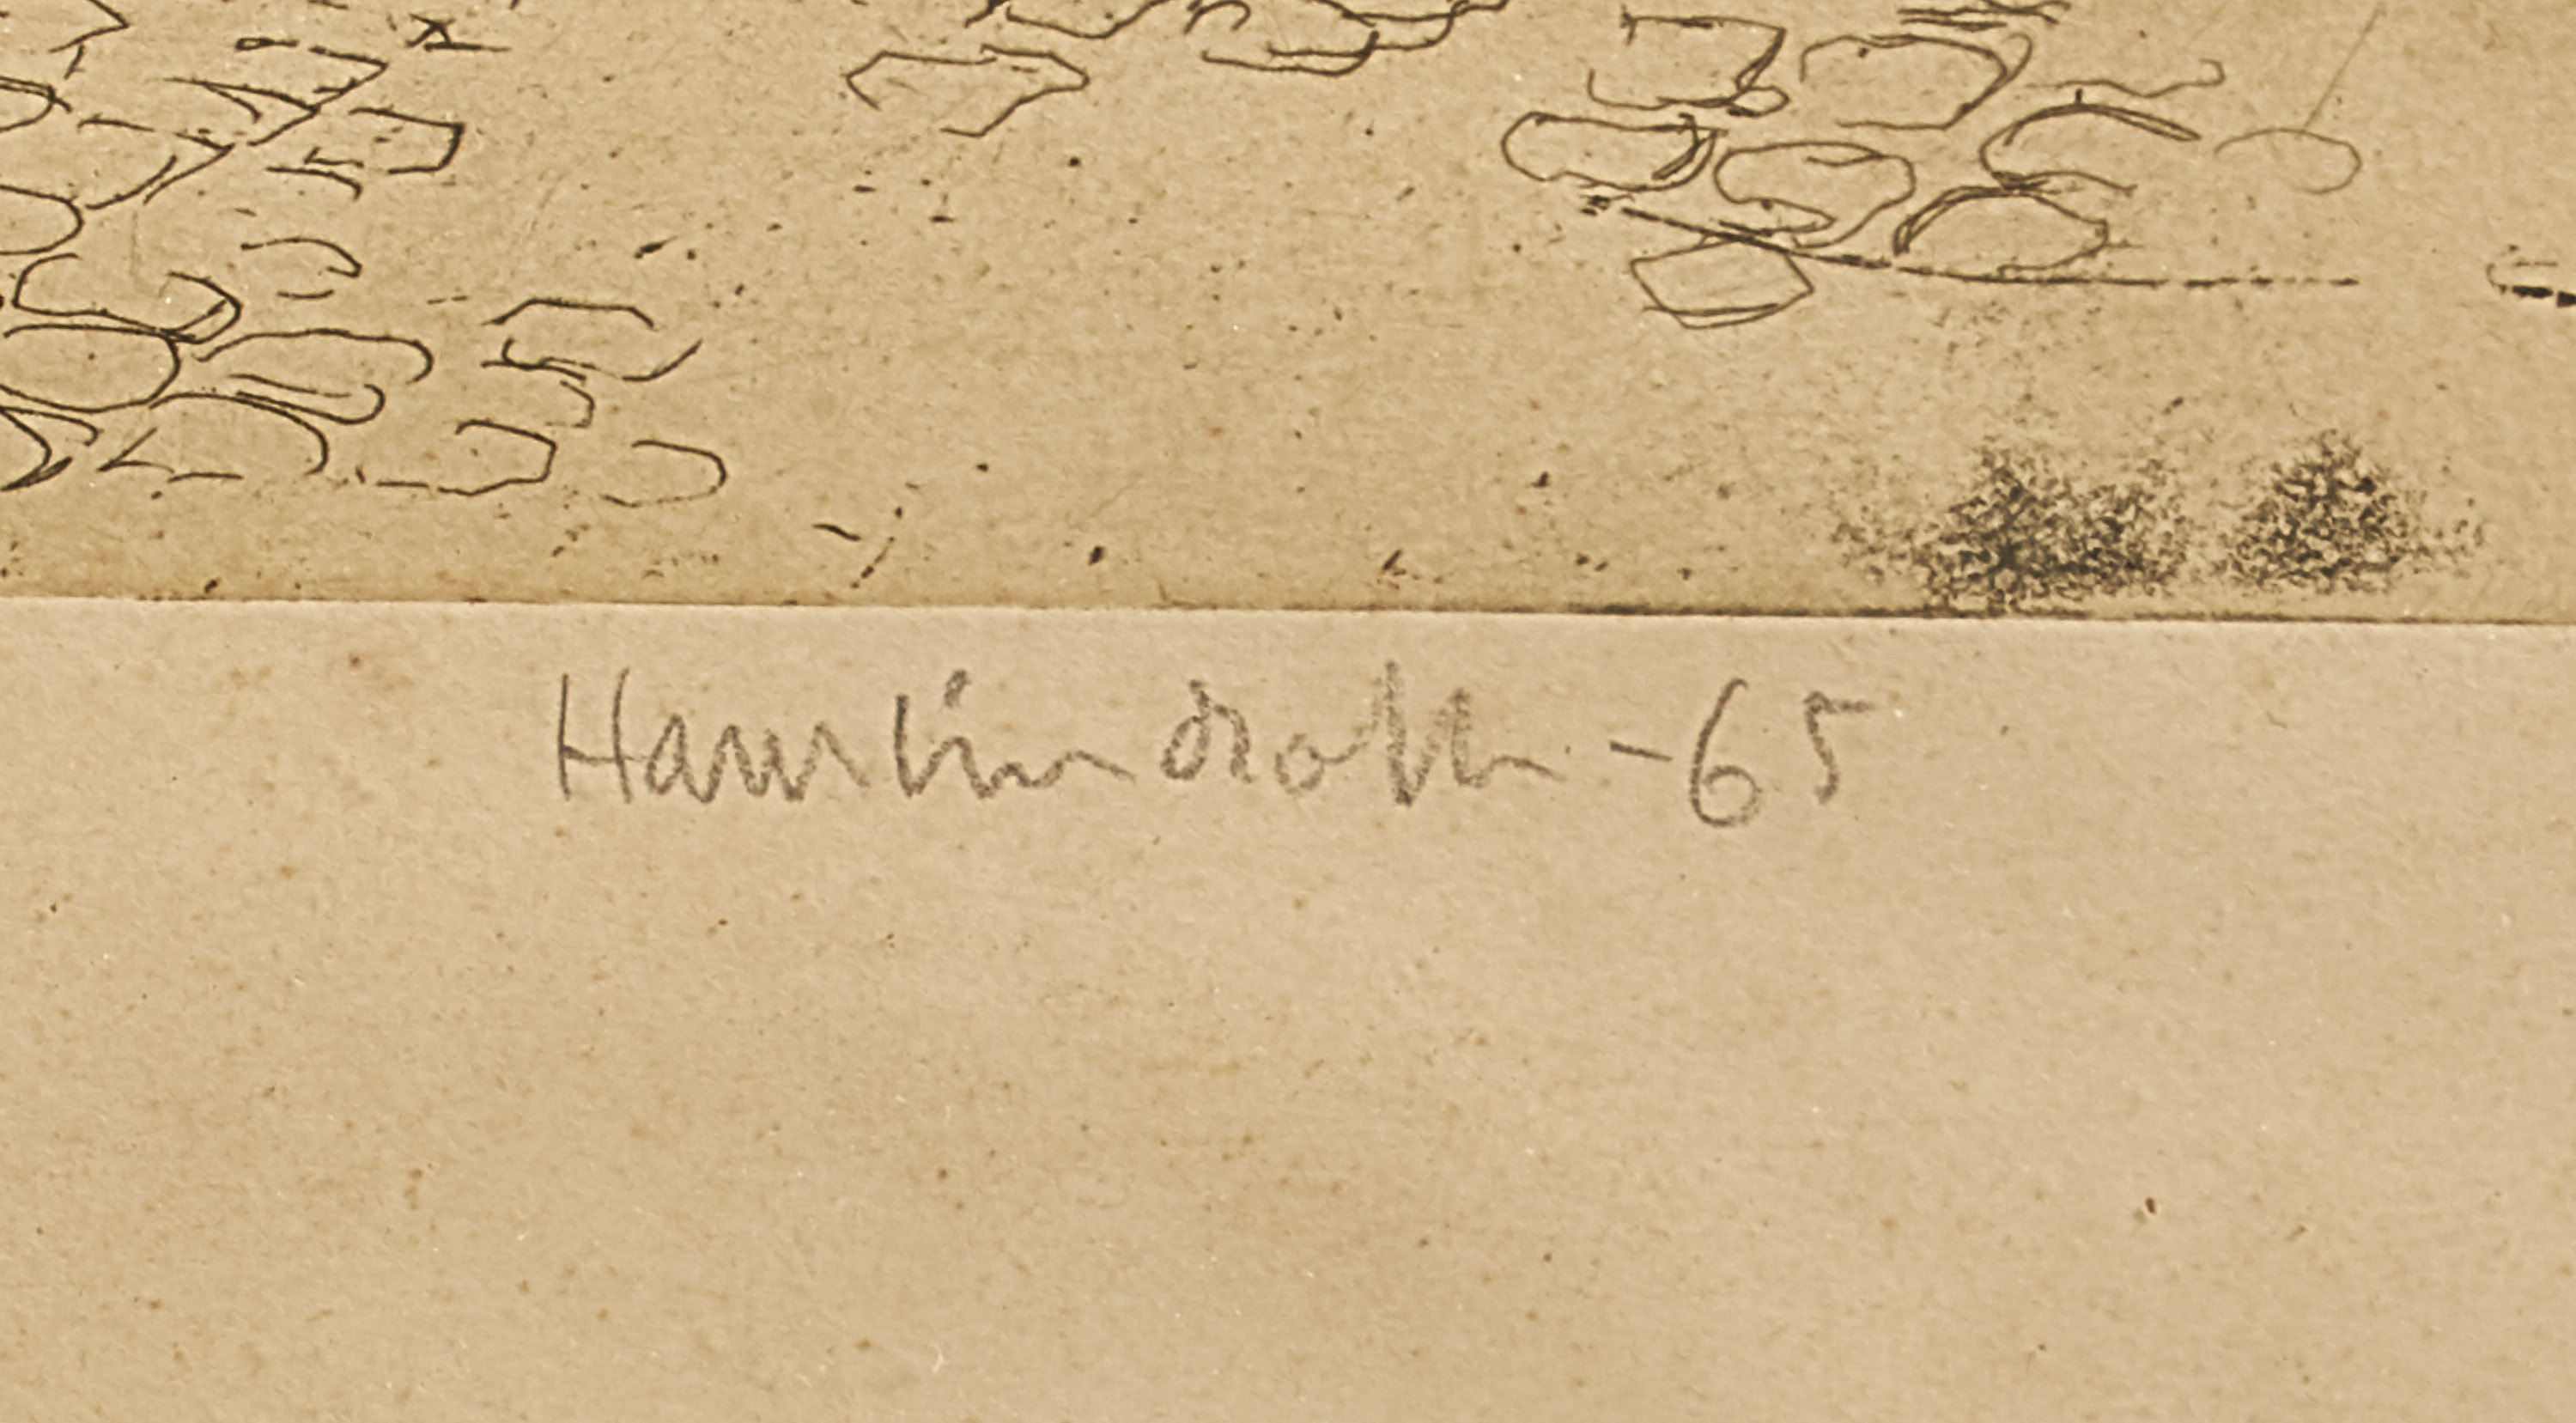 Hans Lindroth -65